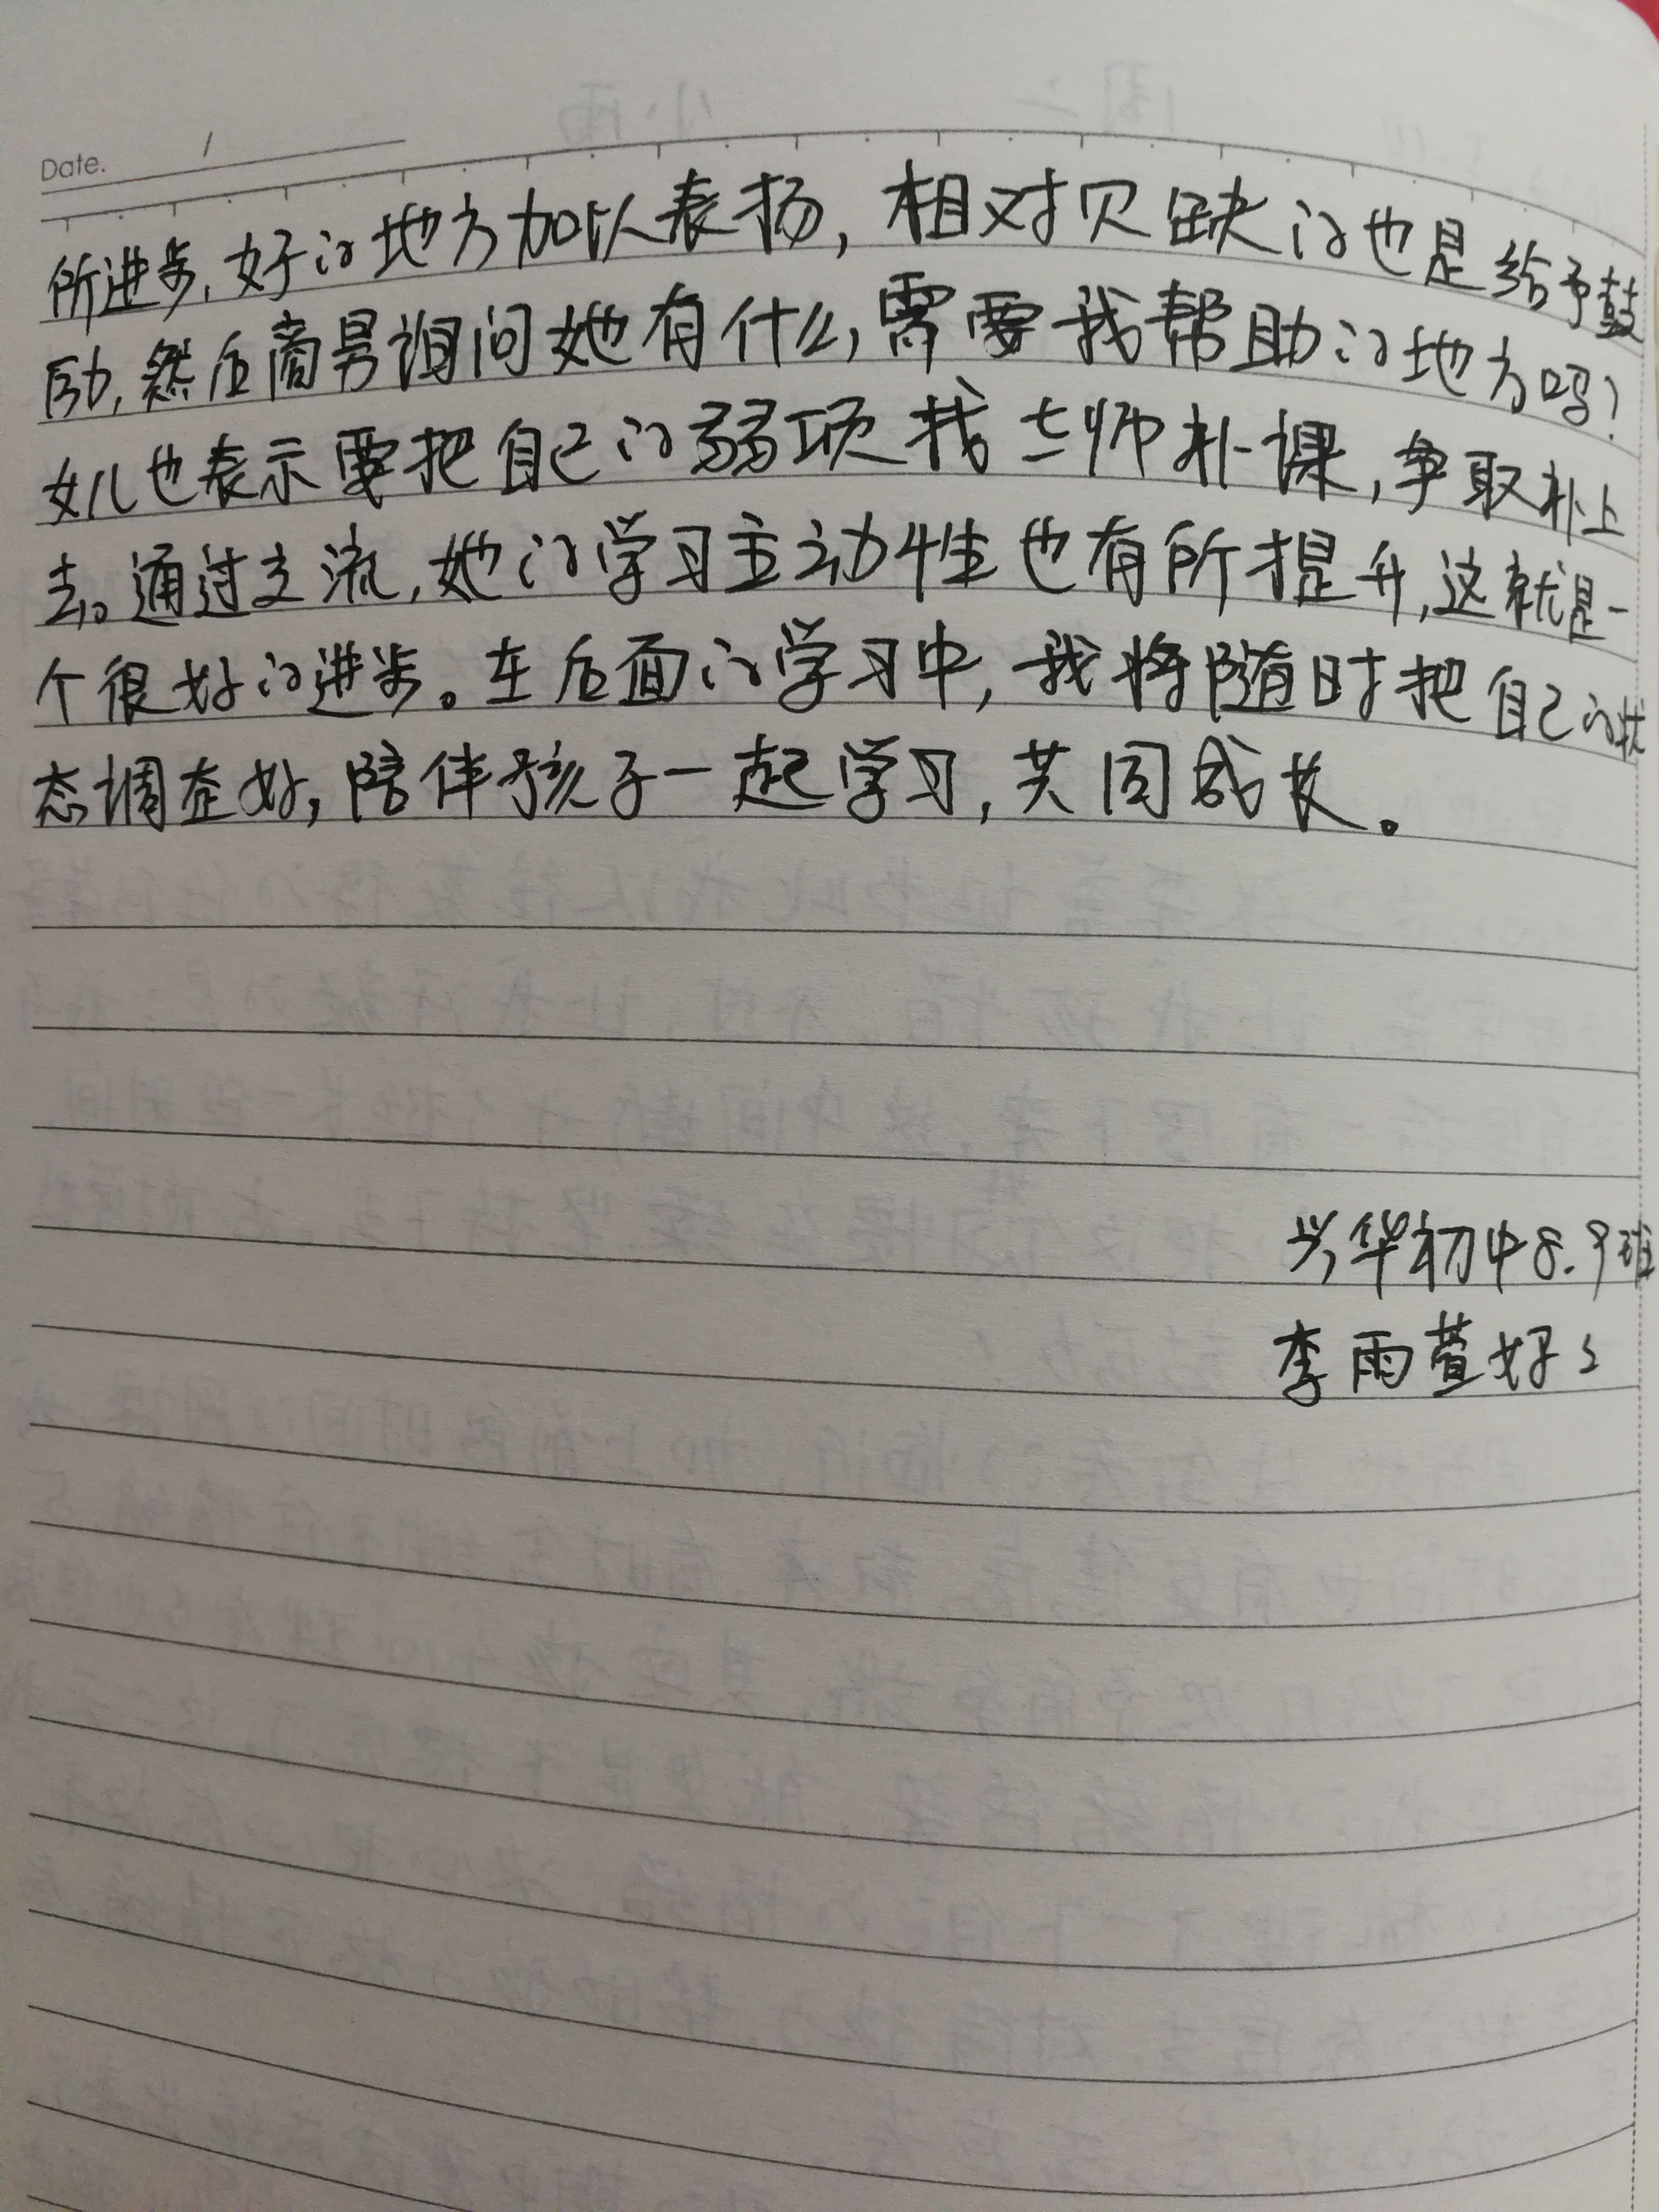 Date.
所进步,好的地方加以表扬,相对欠缺的也是给予鼓
励,然后商量询问她有什么,需要我帮助的地方吗?
女儿也表示要把自己的弱项找老师补课,争取补上
去。通过交流,她的学习主动性也有所提升,这就是一
个很好的进步。在后面的学习中,我将随时把自己的状
态调整好,陪伴孩子一起学习,共同成长。
兴华初中8.9班
李雨萱妈妈